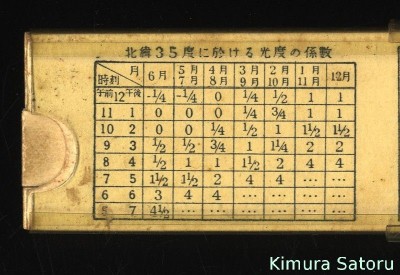 北緯35度に於ける光度の係数
月 時刻 6月 5月 7月 4月 8月 3月 9月 2月 10月 1月 11月 12月
午前12午後 -1/4 -1/4 0 1/4 1/2 1 1
11 1 0 0 0 1/4 3/4 1 1
10 2 0 0 1/4 1/2 1 1 1/2 1 1/2
9 3 1/2 1/2 3/4 1 1 1/4 2 2
8 4 1/2 1 1 1 1/2 2 4 4
7 5 1 1/2 1 1/2 2 4 4 … …
6 6 3 4 4 … … … …
5 7 4 1/2 … … … … … …
Kimura Satoru